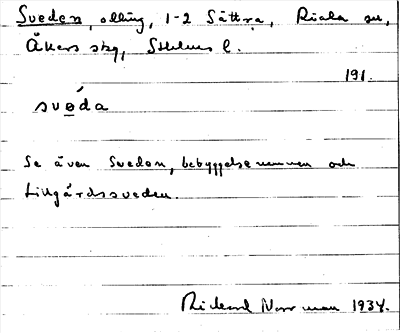 Sveden, ollüg, 1-2 Sättra, Riala sn,
Åkers skg, Sthlms l.
191.
svǝ́da
Se även Sveden, bebyggelsenamnen och
Lillgårdssveden.
Rickard Norrman 1934.